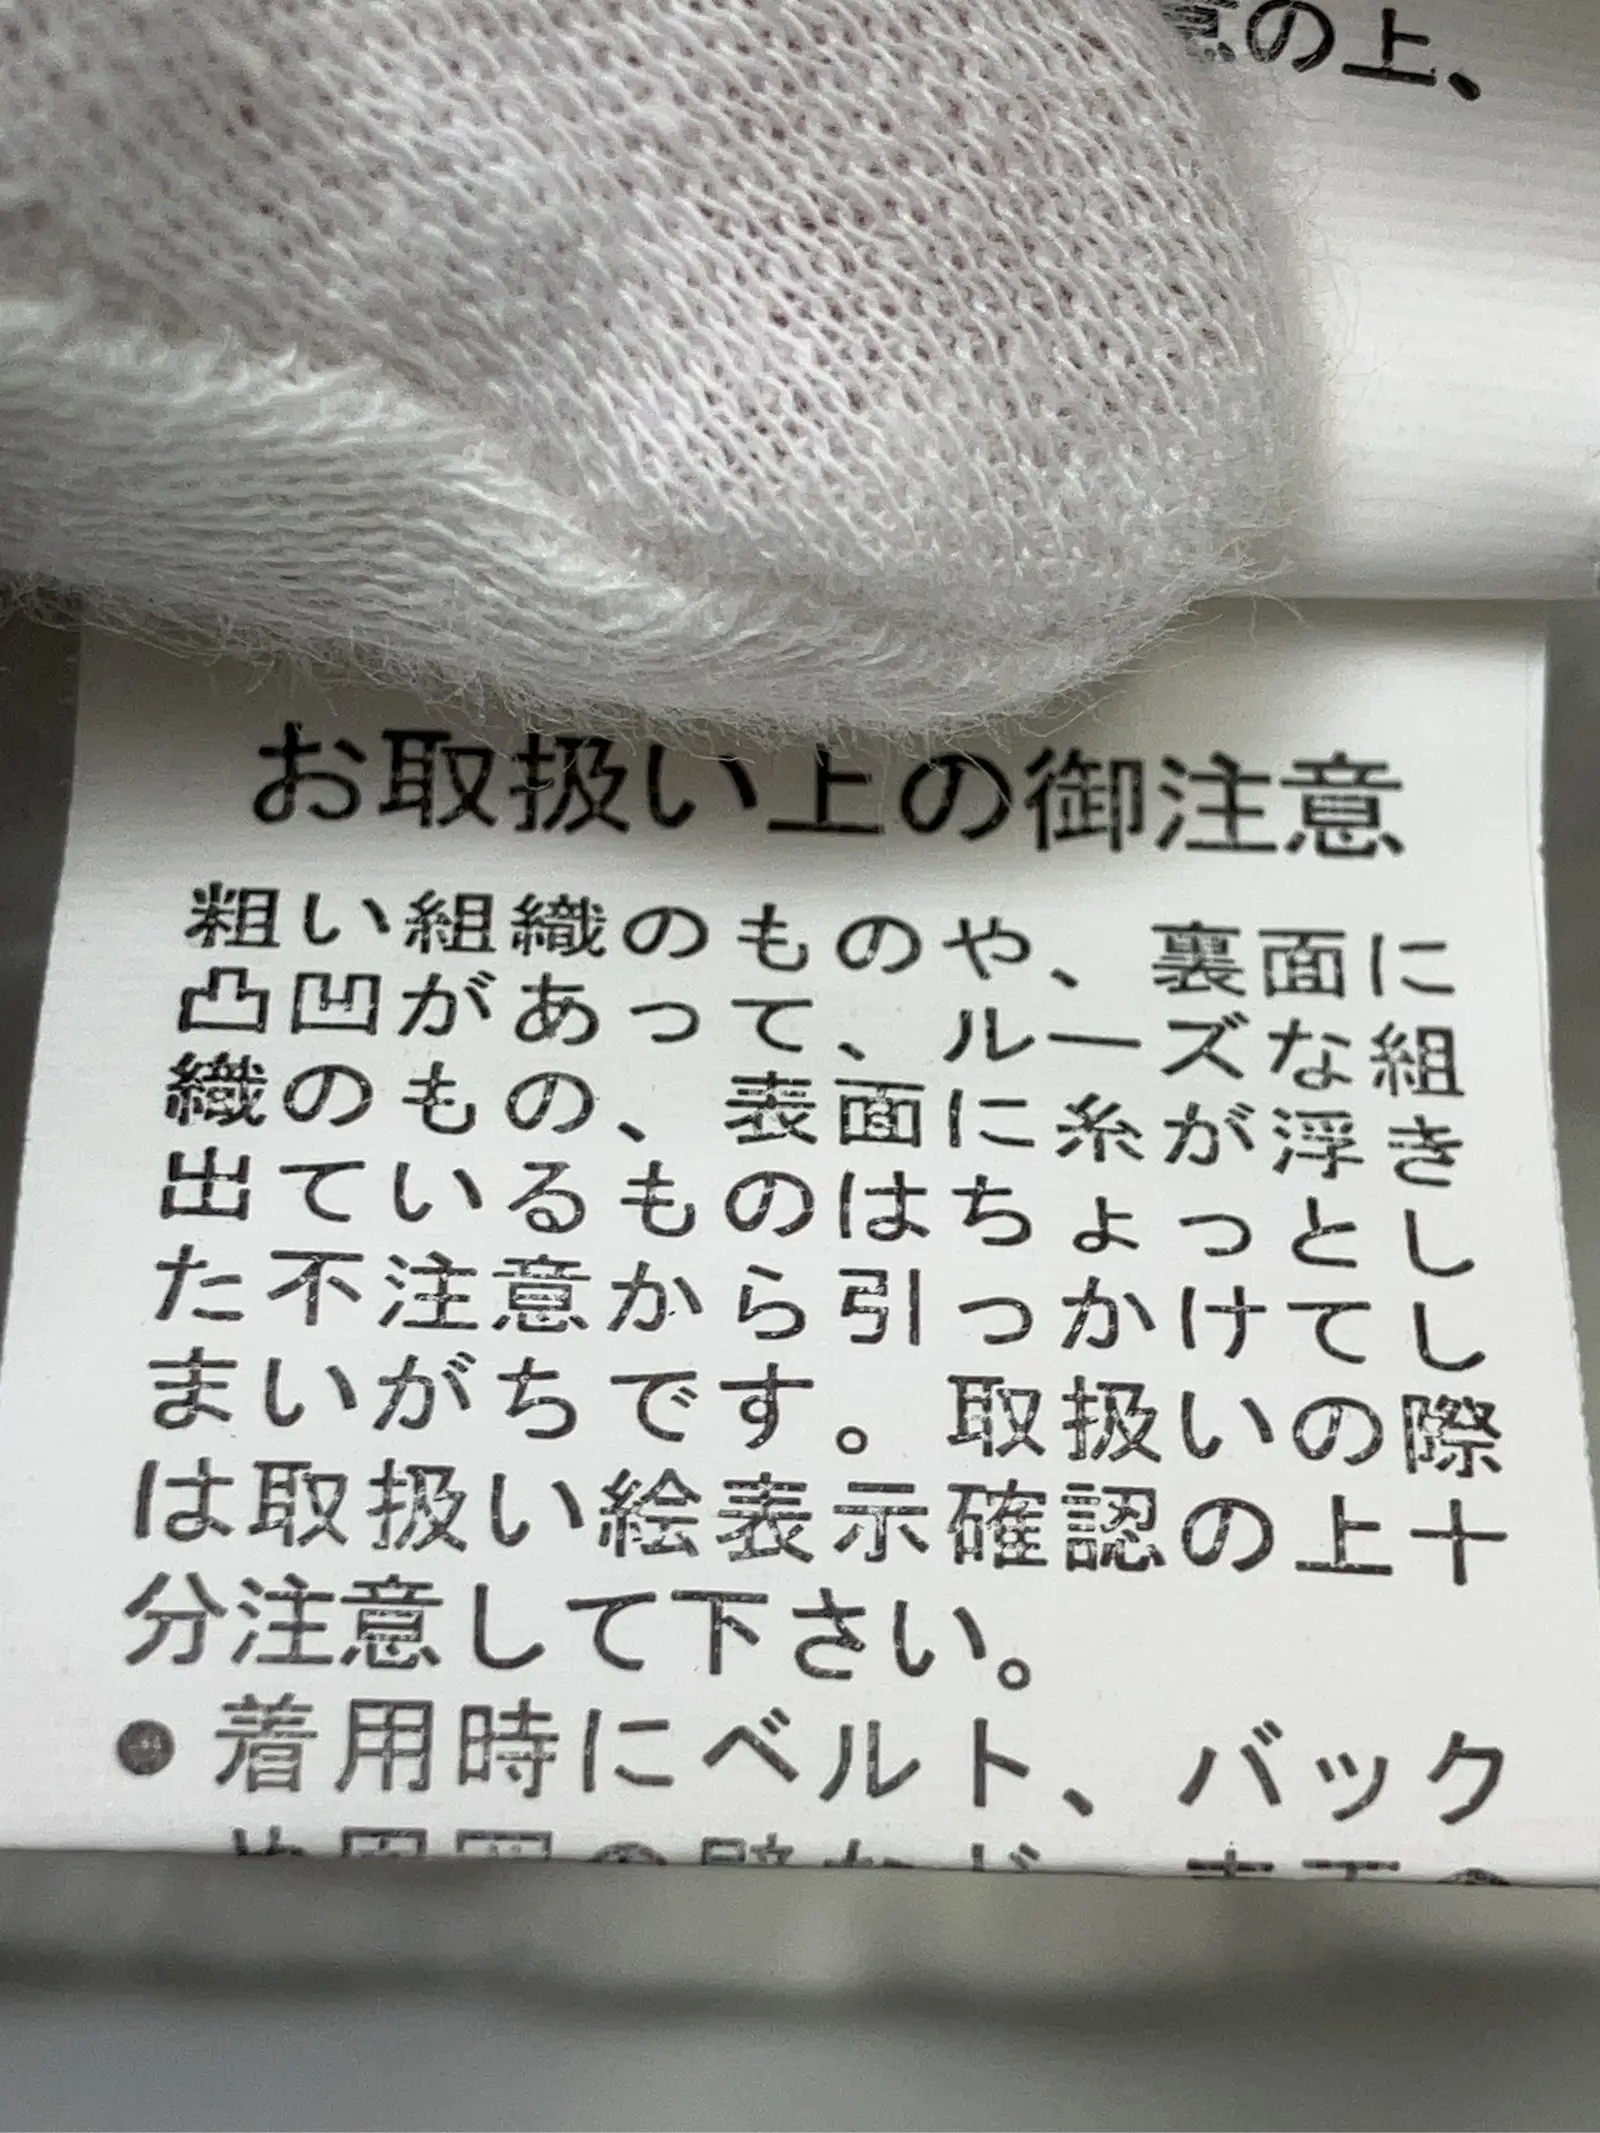 の上、
お取扱い上の御注意
粗い組織のものや、裏面に
凸凹があって、ルーズな組
織のもの、表面に糸が浮き
出ているものはちょっとし
た不注意から引っかけてし
まいがちです。取扱いの際
は取扱い絵表示確認の上十
分注意して下さい。
●着用時にベルト、バック